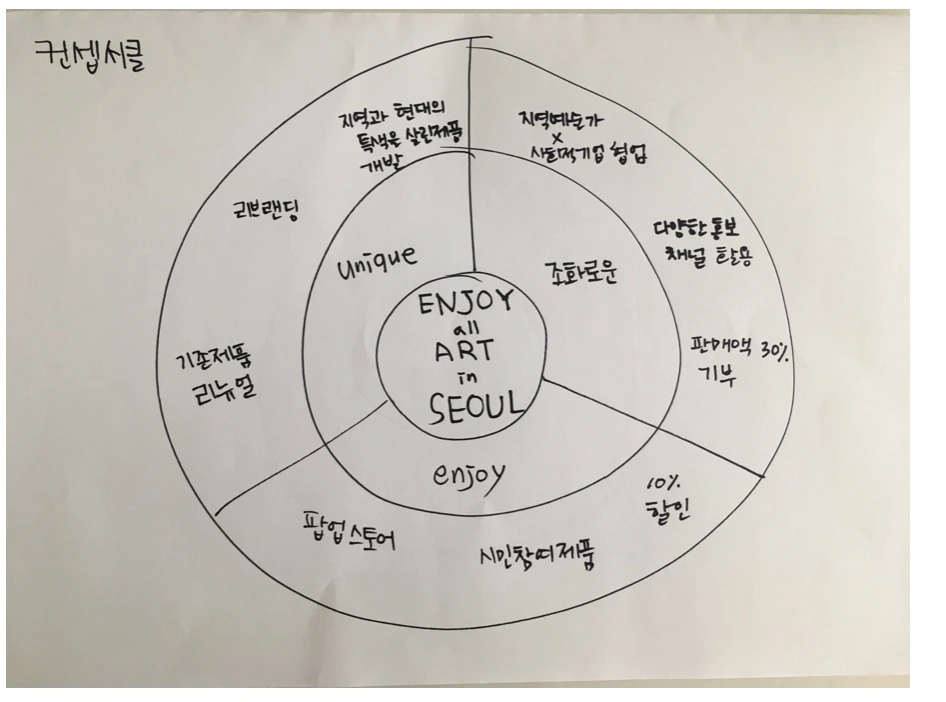 컨셉서클
지역과 현대의
특색을 살린제품
개발
리브랜딩
기존제품
리뉴얼
unique
지역예술가
x
사회적기업 협업
다양한 홍보
채널 활용
판매액 30%
기부
조화로운
ENJOY
all
ART
in
SEOUL
enjoy
팝업스토어
시민참여제품
10%
할인